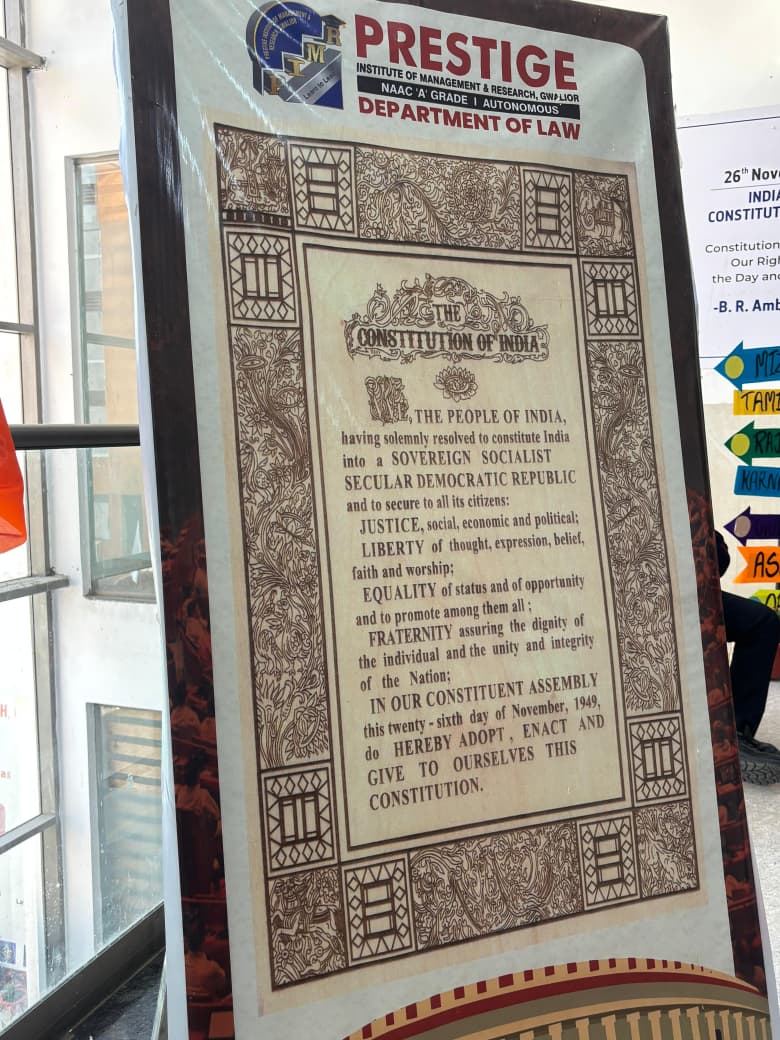 PRESTIGE
INSTITUTE OF MANAGEMENT & RESEARCH, GWALIOR
NAAC 'A' GRADE | AUTONOMOUS
DEPARTMENT OF LAW
THE
CONSTITUTION OF INDIA
WE, THE PEOPLE OF INDIA,
having solemnly resolved to constitute India
into a SOVEREIGN SOCIALIST
SECULAR DEMOCRATIC REPUBLIC
and to secure to all its citizens:
JUSTICE, social, economic and political;
LIBERTY of thought, expression, belief,
faith and worship;
EQUALITY of status and of opportunity
and to promote among them all ;
FRATERNITY assuring the dignity of
the individual and the unity and integrity
of the Nation;
IN OUR CONSTITUENT ASSEMBLY
this twenty - sixth day of November, 1949,
do HEREBY ADOPT , ENACT AND
GIVE TO OURSELVES THIS
CONSTITUTION.
26th Nov
INDIA
CONSTITUT
Constitution
Our Righ
the Day and
-B. R. Amb
MIZ
TAMI
RAJ
KARNA
AS